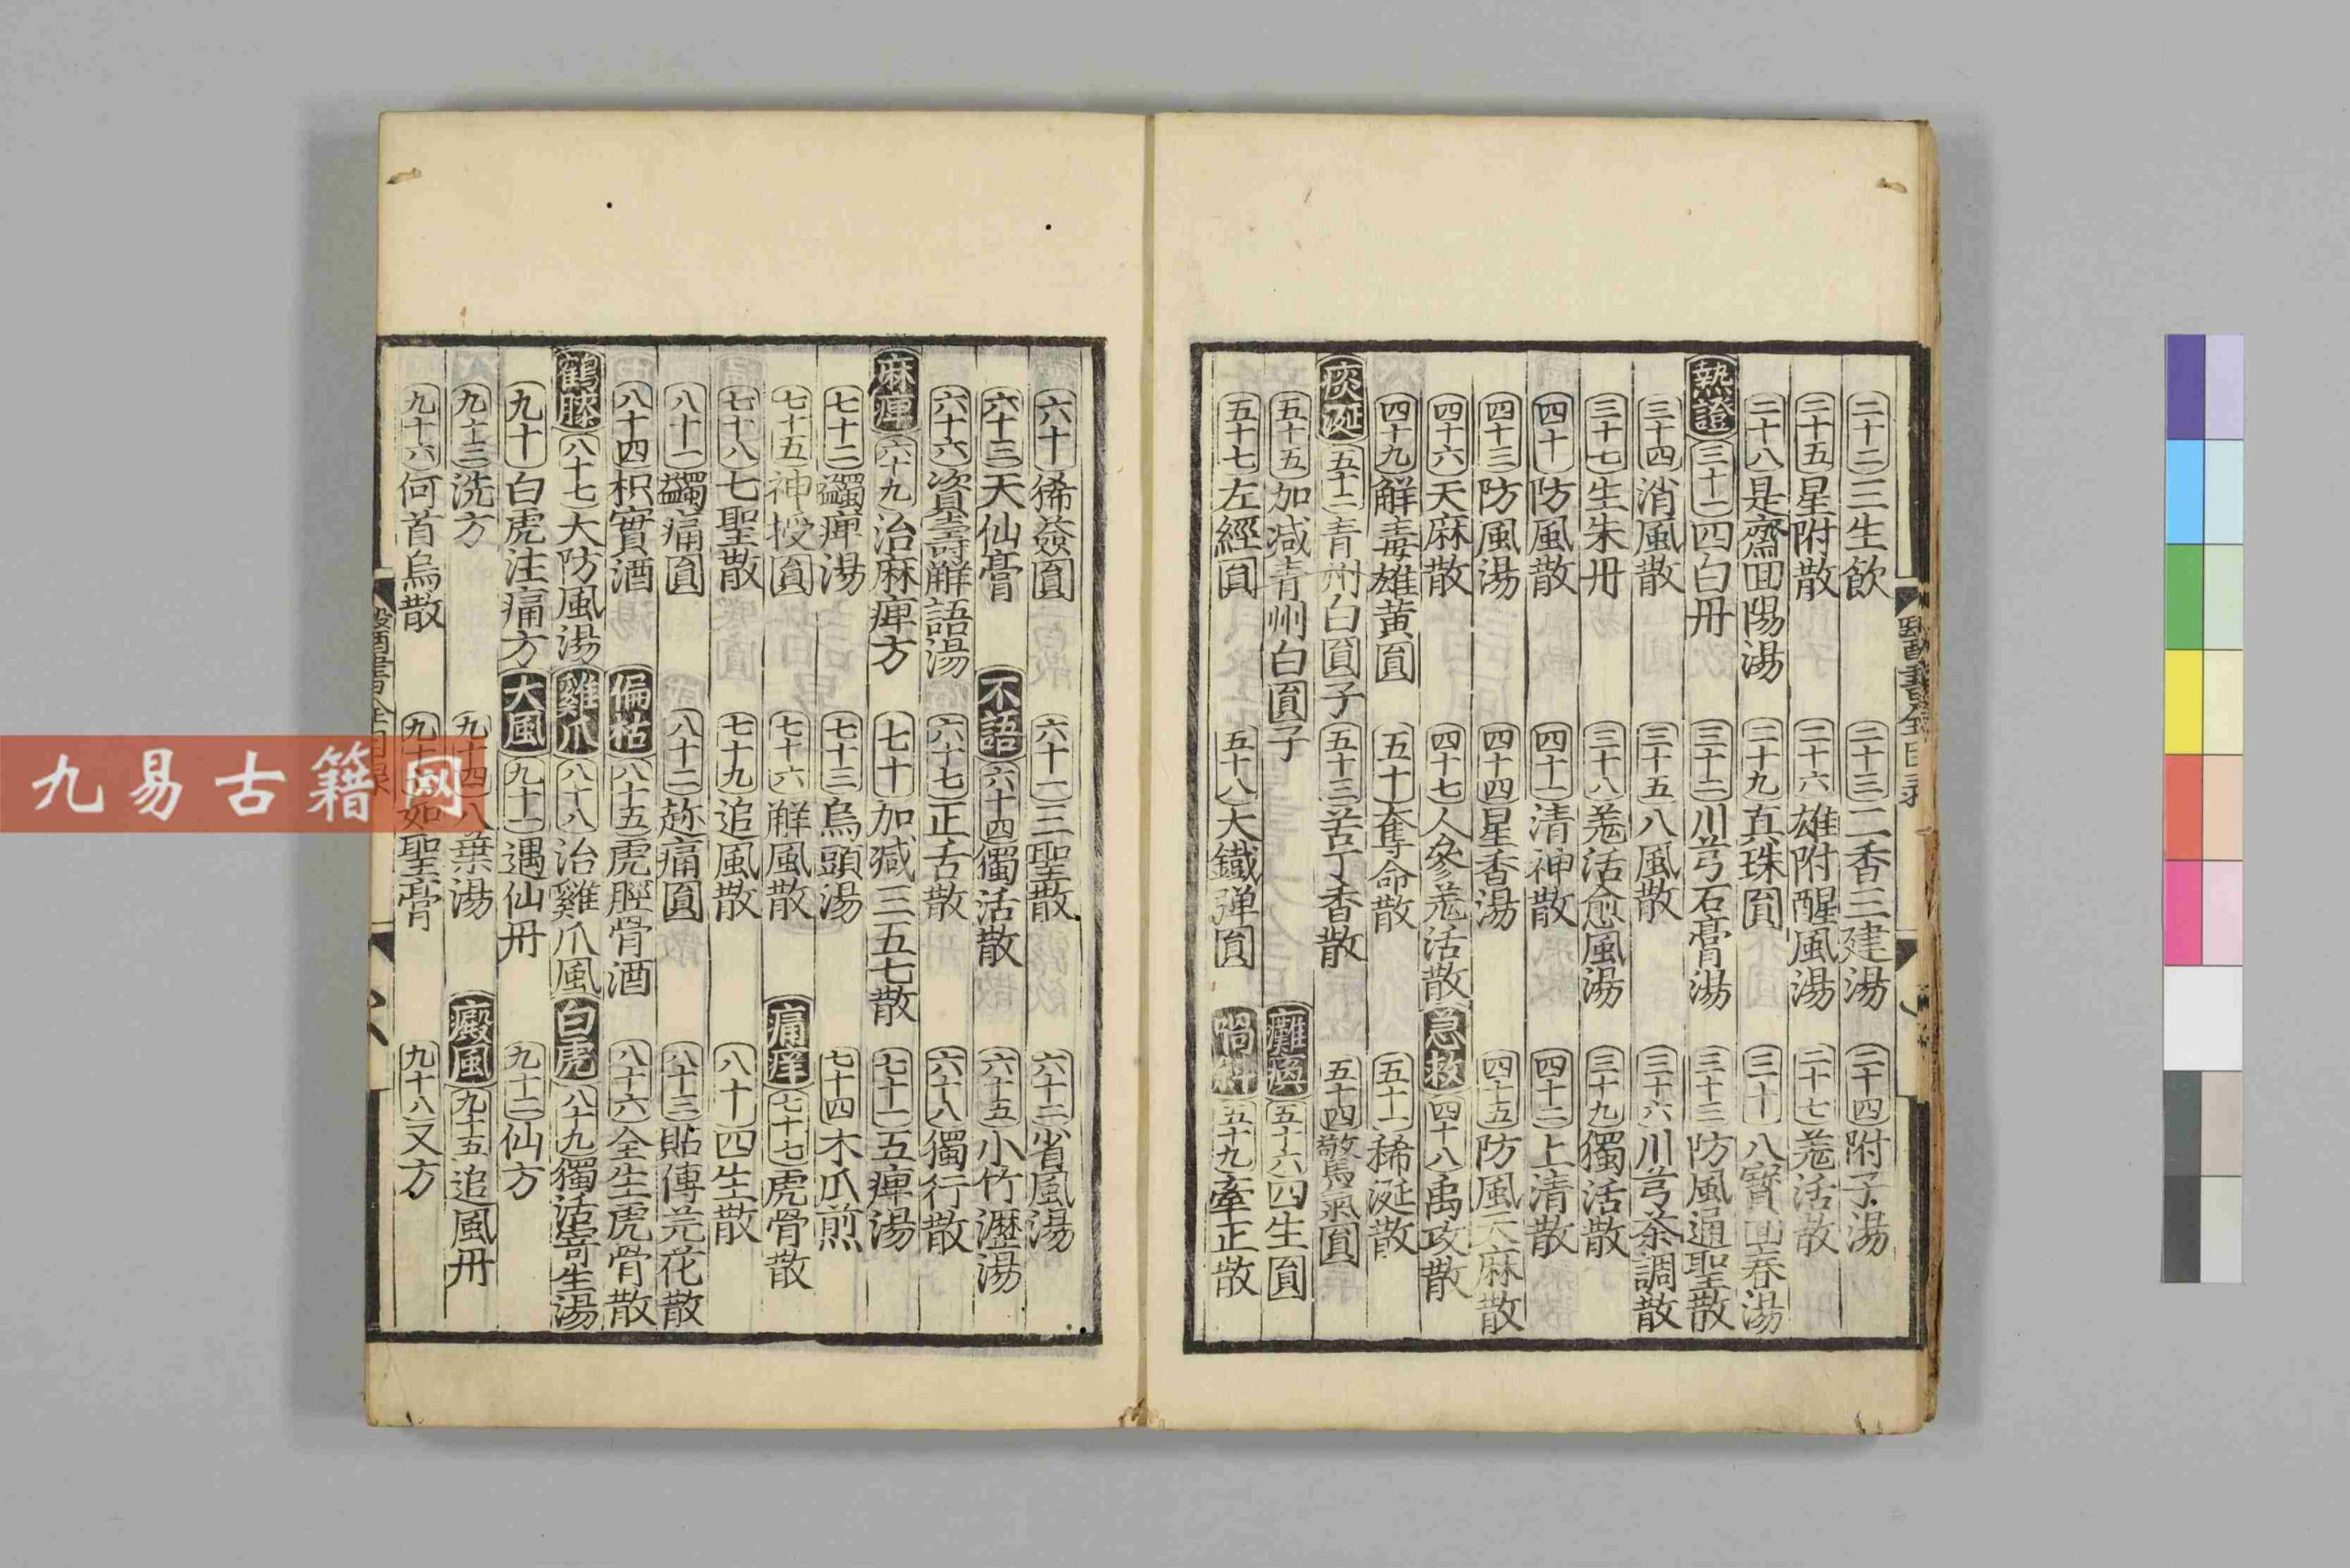 二十二三生飲 二十三二香三建湯 二十四附子湯
二十五星附散 二十六雄附醒風湯 二十七羗活散
二十八是齋囬陽湯 二十九真珠圓 三十八寳囬春湯
熱證 三十一四白丹 三十二川芎石膏湯 三十三防風通聖散
三十四消風散 三十五八風散 三十六川芎茶調散
三十七生朱丹 三十八羗活愈風湯 三十九獨活散
四十防風散 四十一清神散 四十二上清散
四十三防風湯 四十四星香湯 四十五防風天麻散
四十六天麻散 四十七人參羗活散 急救 四十八禹攻散
四十九解毒雄黃圓 五十奪命散 五十一稀涎散
痰涎 五十二青州白圓子 五十三苦丁香散 五十四驚氣圓
五十五加减青州白圓子 癱瘓 五十六四生圓
五十七左經圓 五十八大鐵彈圓 喎斜 五十九牽正散
六十豨薟圓 六十一三聖散 六十二省風湯
六十三天仙膏 不語 六十四獨活散 六十五小竹瀝湯
六十六資壽解語湯 六十七正舌散 六十八獨行散
麻痺 六十九治麻痺方 七十加減三五七散 七十一五痺湯
七十二蠲痺湯 七十三烏頭湯 七十四木瓜煎
七十五神授圓 七十六解風散 痛痒 七十七虎骨散
七十八七聖散 七十九追風散 八十四生散
八十一蠲痛圓 八十二趂痛圓 八十三貼傅芫花散
八十四枳實酒 偏枯 八十五虎脛骨酒 八十六全生虎骨散
鶴膝 八十七大防風湯 雞爪 八十八治雞爪風 白虎 八十九獨活寄生湯
九十白虎注痛方 大風 九十一遇仙丹 九十二仙方
九十三洗方 九十四八葉湯 癜風 九十五追風丹
九十六何首烏散 九十七如聖膏 九十八又方
九易古籍网